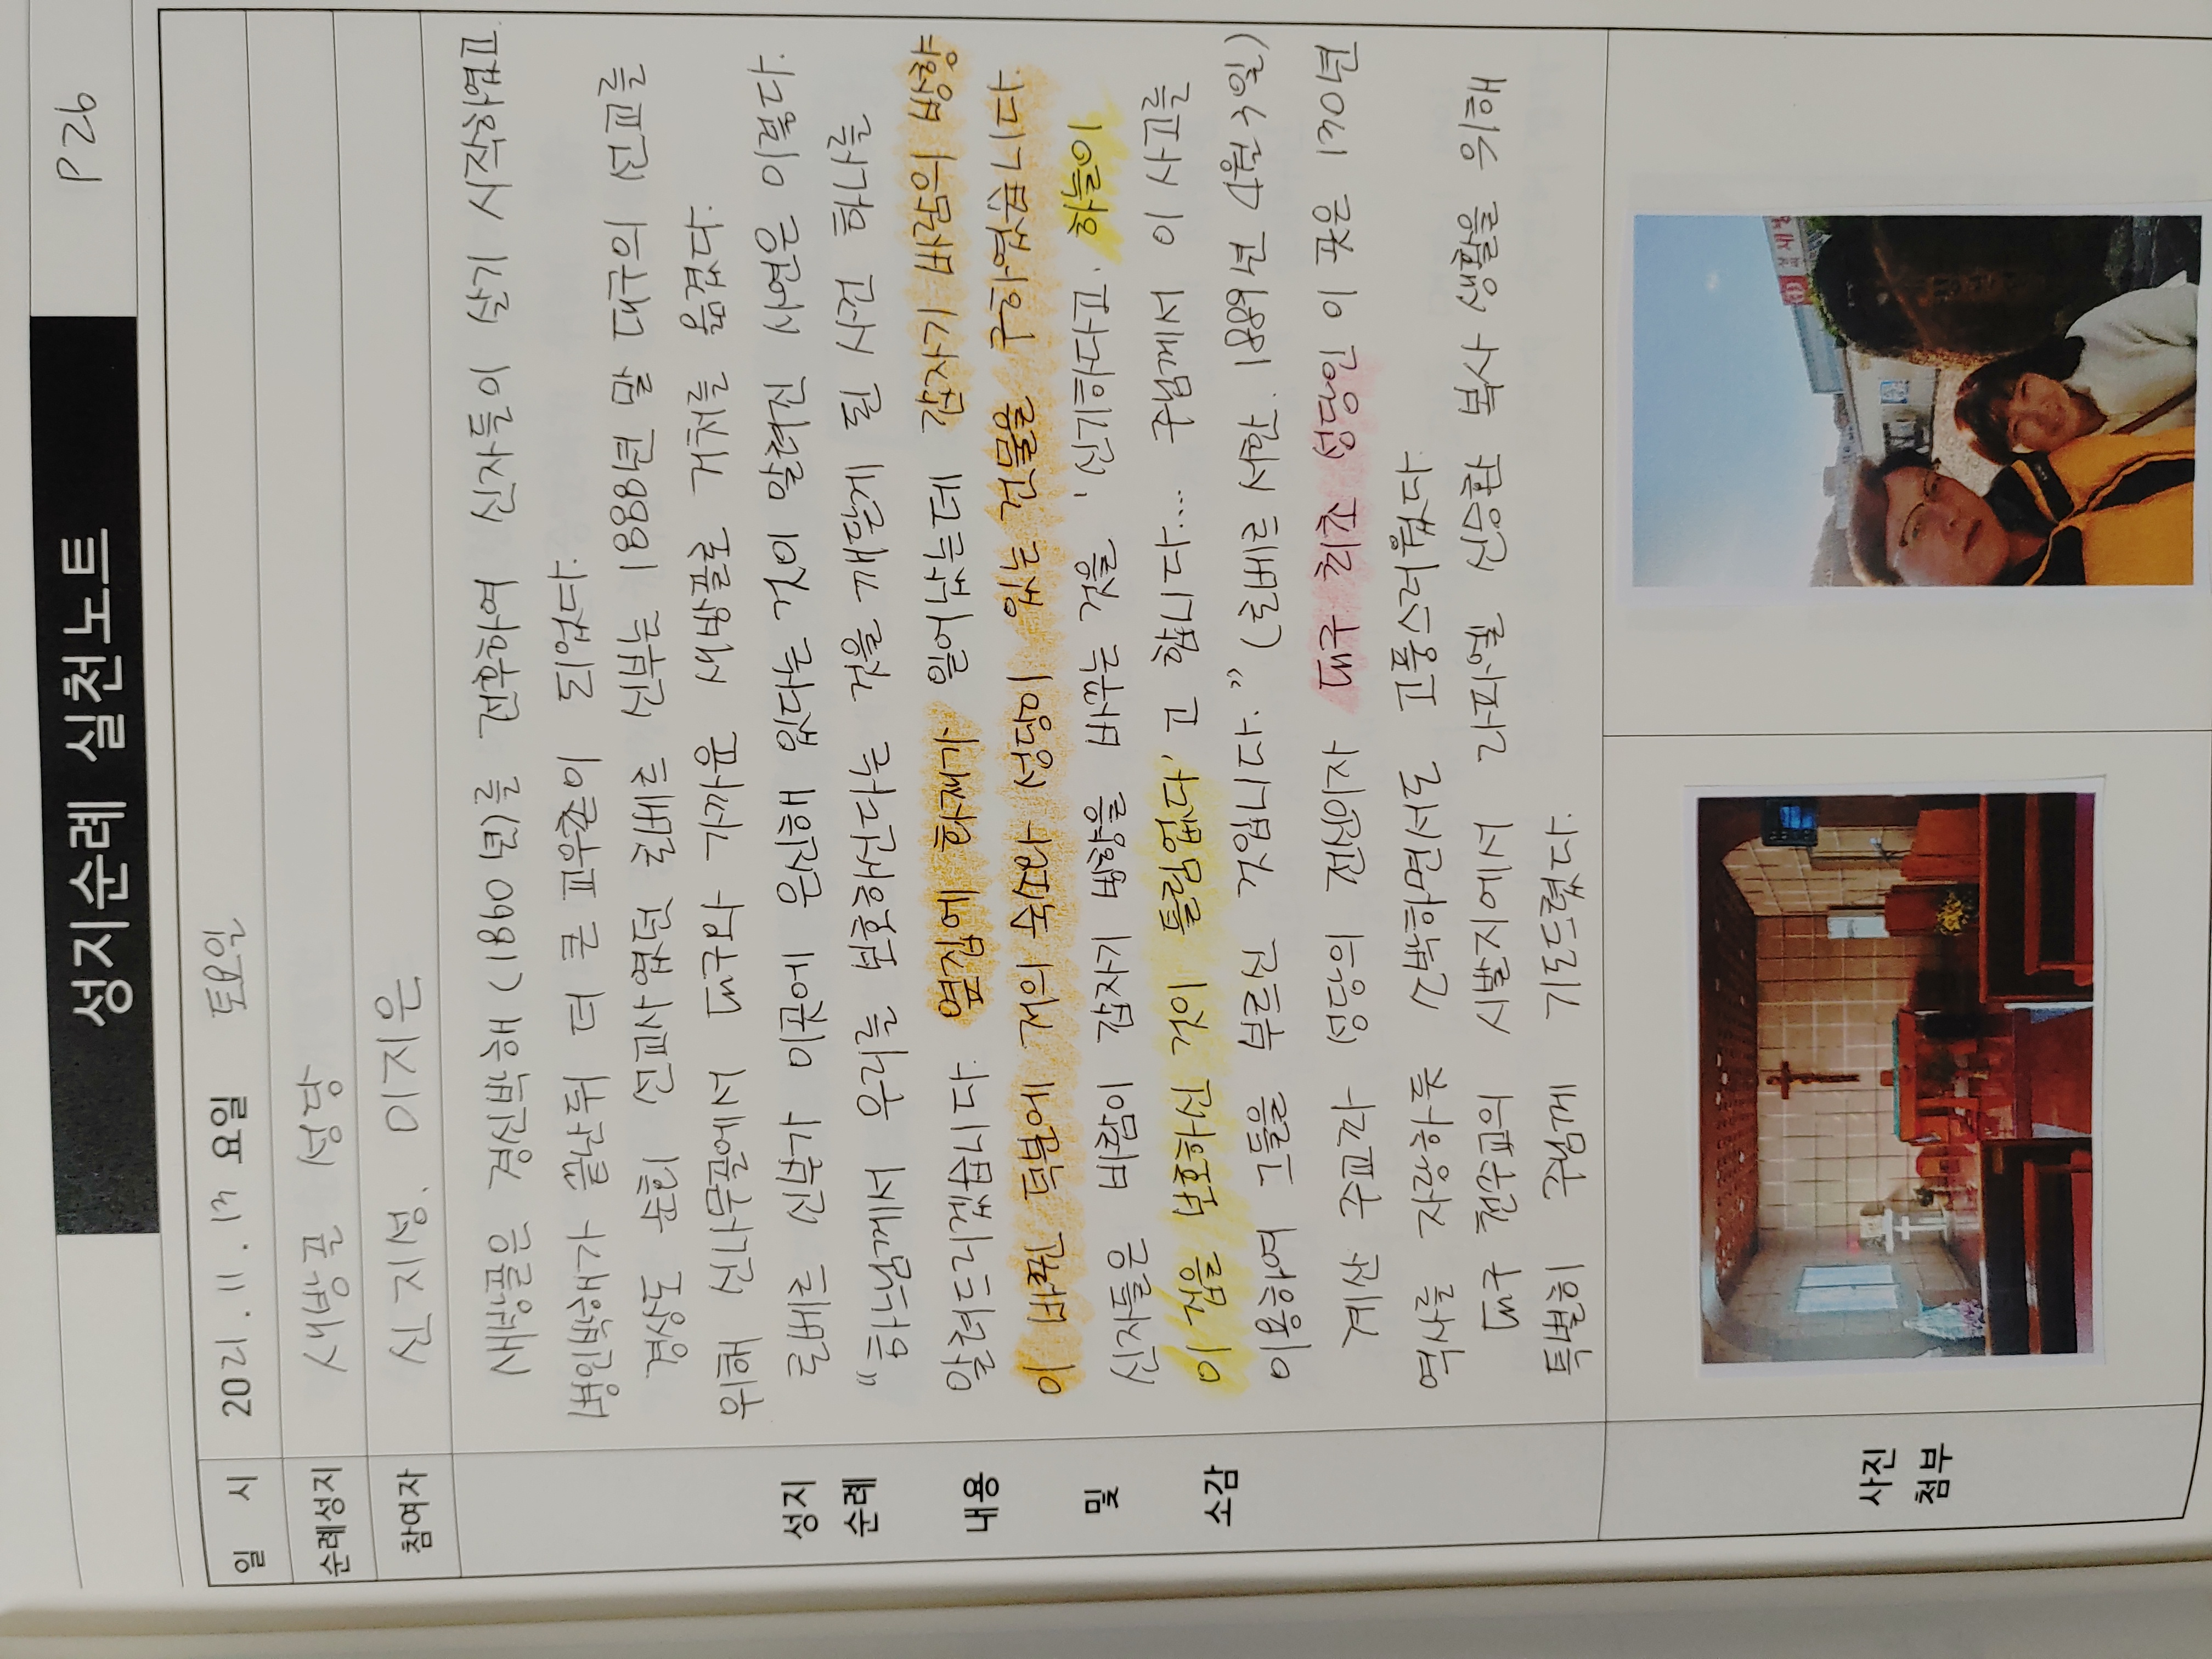 성지순례 실천노트
P 26
일 시 2021. 11. 13 요일 토요일
순례성지 새방골 성당
참여자 신지성. 이지은
새방골은 경신박해 (1860년)를 전후하여 신자들이 살기 시작하였고
병인박해가 끝난뒤 더 큰 교우촌이 되었다.
경상도 순회 선교사였던 로베르 신부는 1888년 말 대구의 선교를
위해 신나무골에서 대구와 가까운 새방골로 거처를 옮겼다.
로베르 신부가 이곳에 은신해 있다는 것이 알려진 사연은 이렇다.
"하느님께서 우리를 보호하신다는 것을 깨닫게 된 사건 하나를
알려드리겠습니다. 옆집에 화재가 일어났는데 갑자기 바람의 방향
이 바뀐 덕분에 저의 숙소와 성당이 있는 건물을 구하였습니다.
신자들은 바람이 갑자기 방향을 바꾸는 것을 '신기하다고. 하늘이
이 집을 보호하신 것이 틀림없다'고 합니다.... 주님께서 이 사고를
이용하여 그들을 부르신 것입니다." (로베르 서한. 1889년 4월 3일)
계산 주교좌 성당의 전신이자 대구 최초 성당인 이 곳은 130년
역사를 자랑하듯 소박하면서도 고풍스러웠다.
대구 천주교의 시발지에서 라파엘 신승환 복사 생활을 위해
특별히 주님께 기도드렸다.
성지
순례
내용
및
소감
사진
첨부